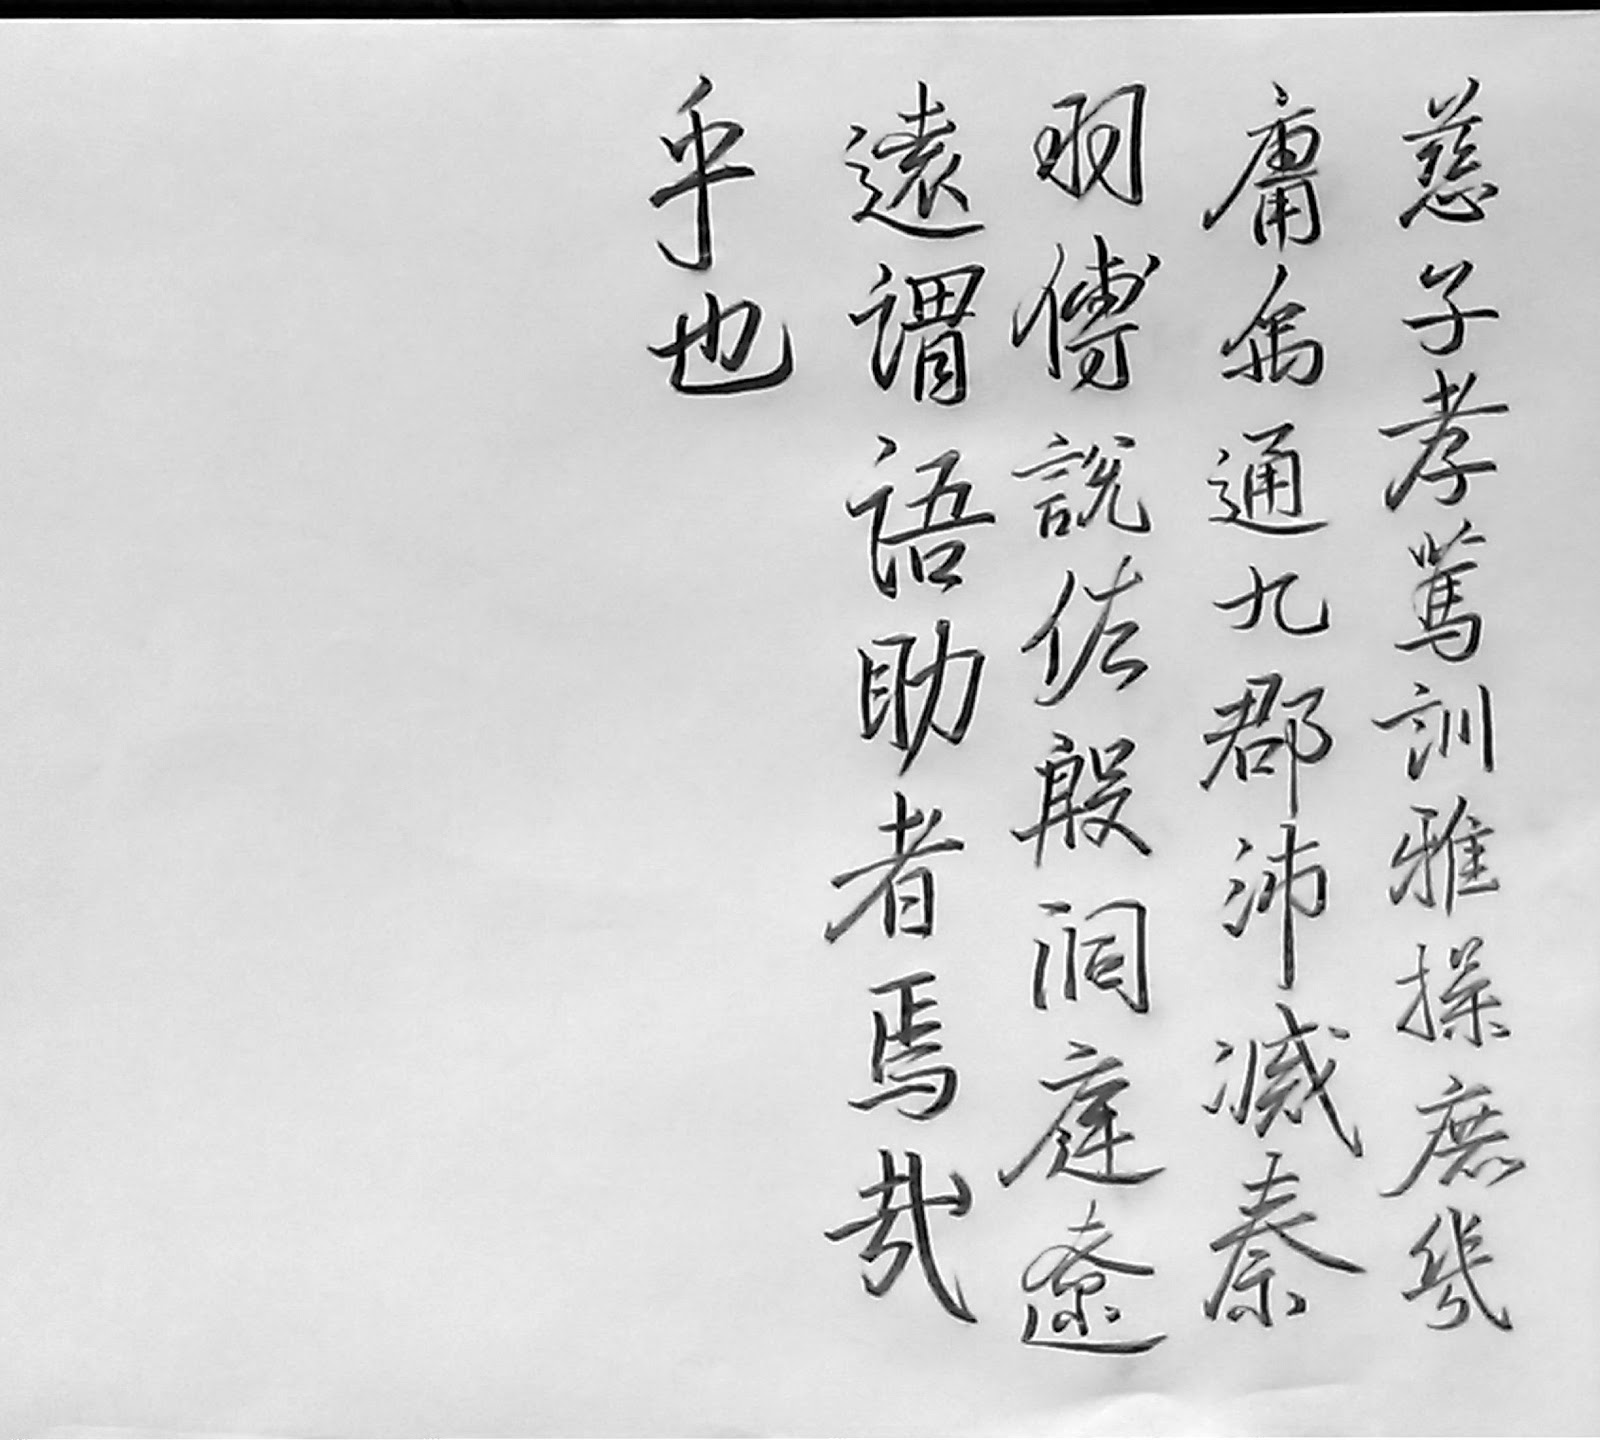 慈子孝篤訓雅操庶幾
庸通九郡沛滅秦
羽傅說佐殷洞庭遼
遠謂語助者焉哉
乎也